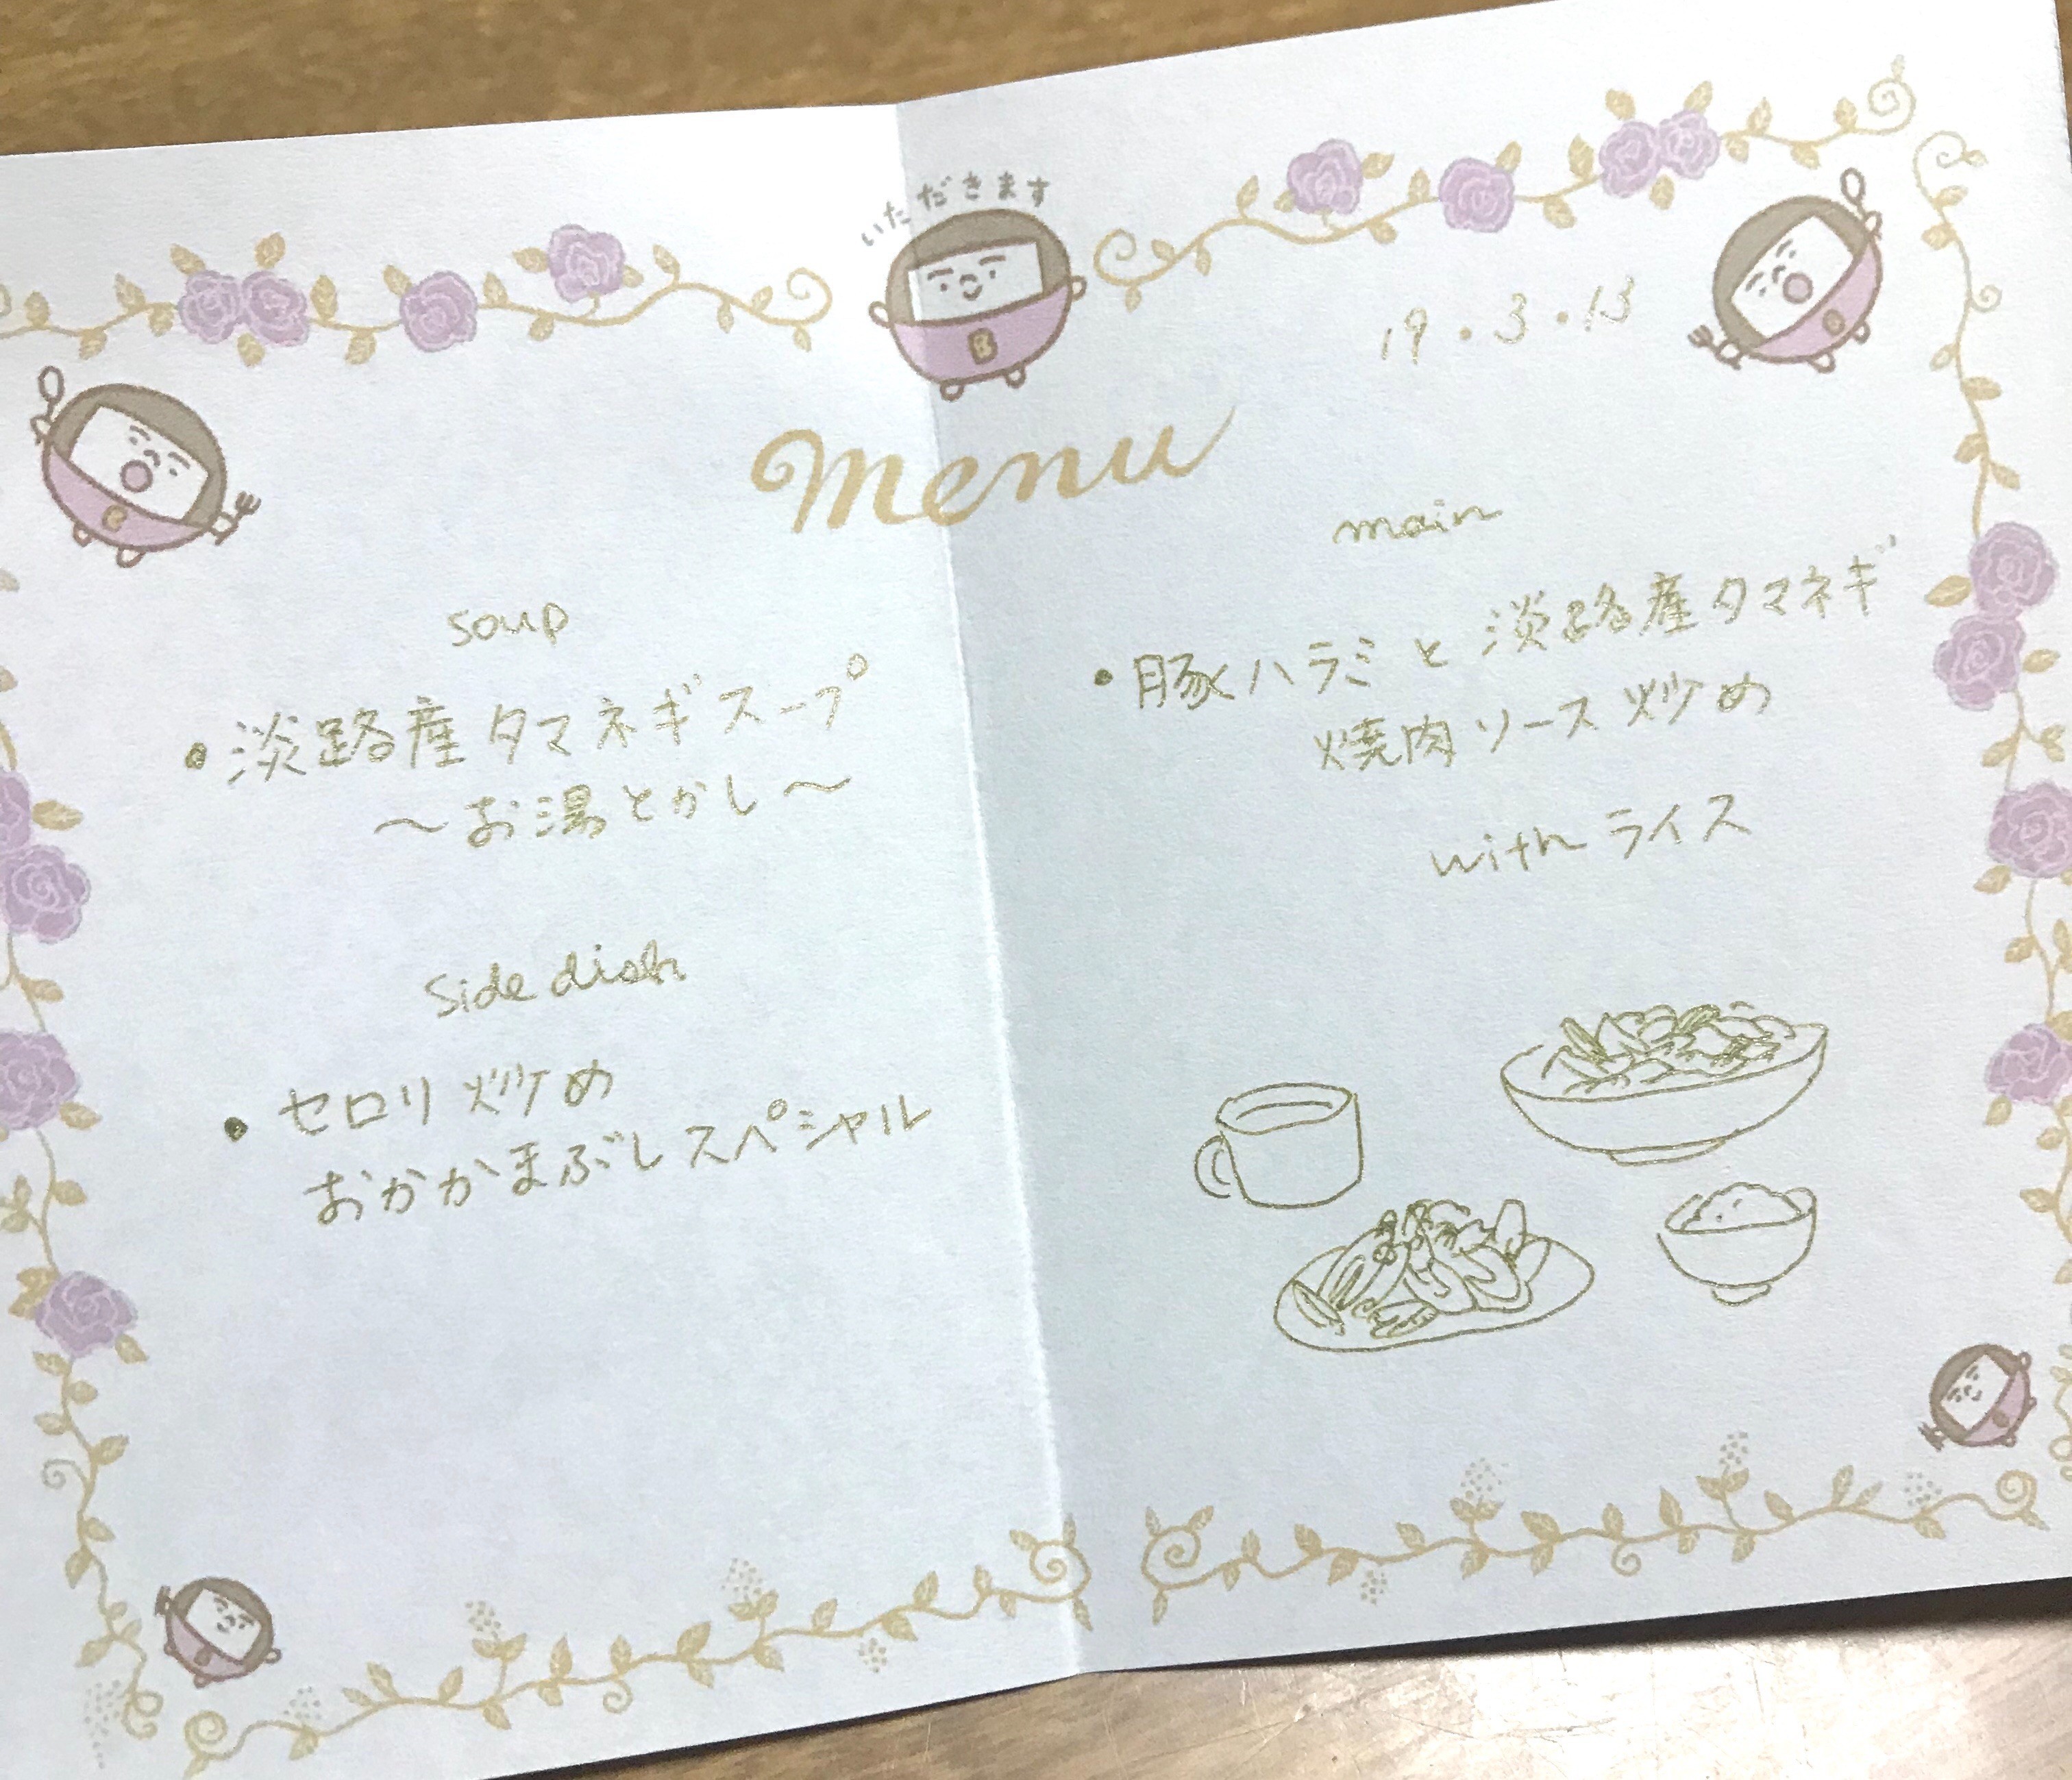 いただきます
B
19・3・13
Menu
soup
・淡路産タマネギスープ
〜お湯とかし〜
Side dish
・セロリ炒め
おかかまぶしスペシャル
main
・豚ハラミと淡路産タマネギ
焼肉ソース炒め
with ライス